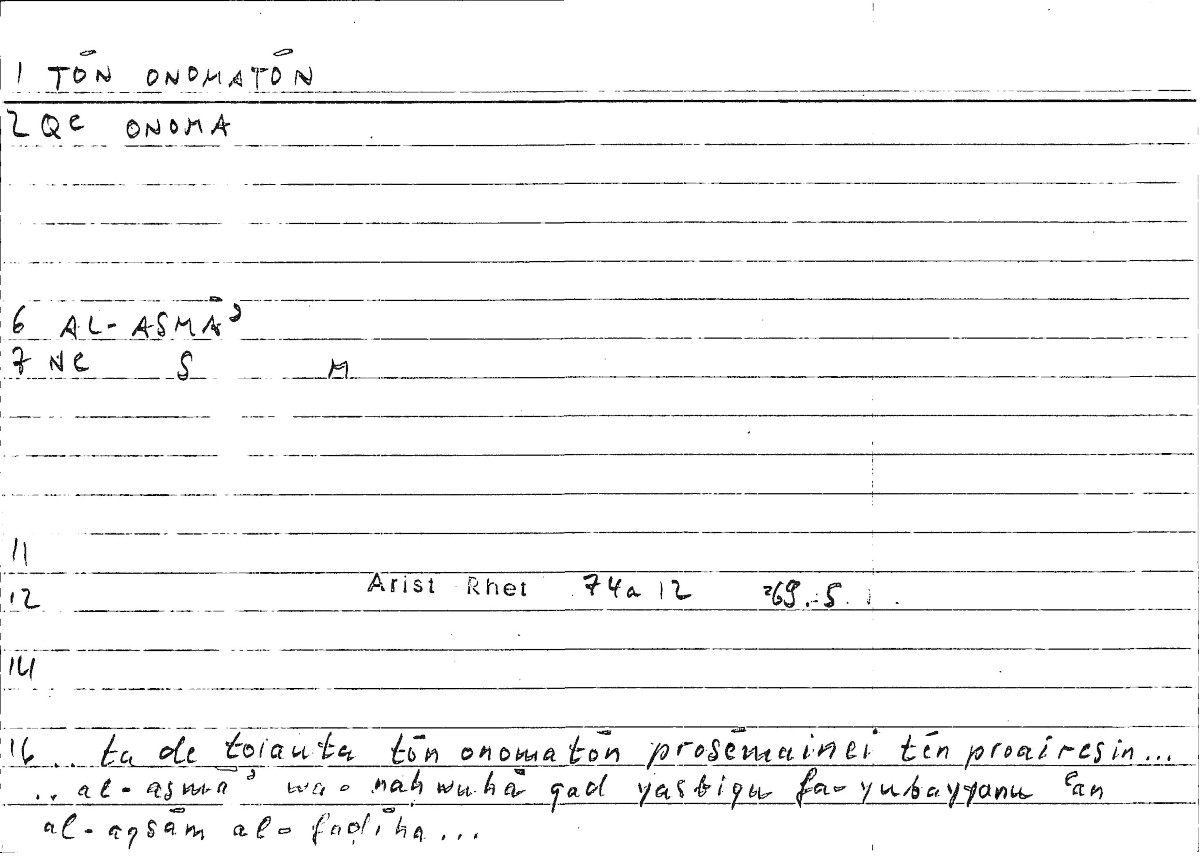 1 TŌN ONOMATŌN
2 QC ONOMA
6 AL-ASMĀʾ
7 NC S M
11
12 Arist Rhet 74a12 269.-5
14
16 .. ta de toiauta tōn onomatōn prosēmainei tēn proairesin...
.. al-asmāʾ wa-nahwuhā qad yasbiqu fa-yubayyanu ʿan
al-aqsām al-